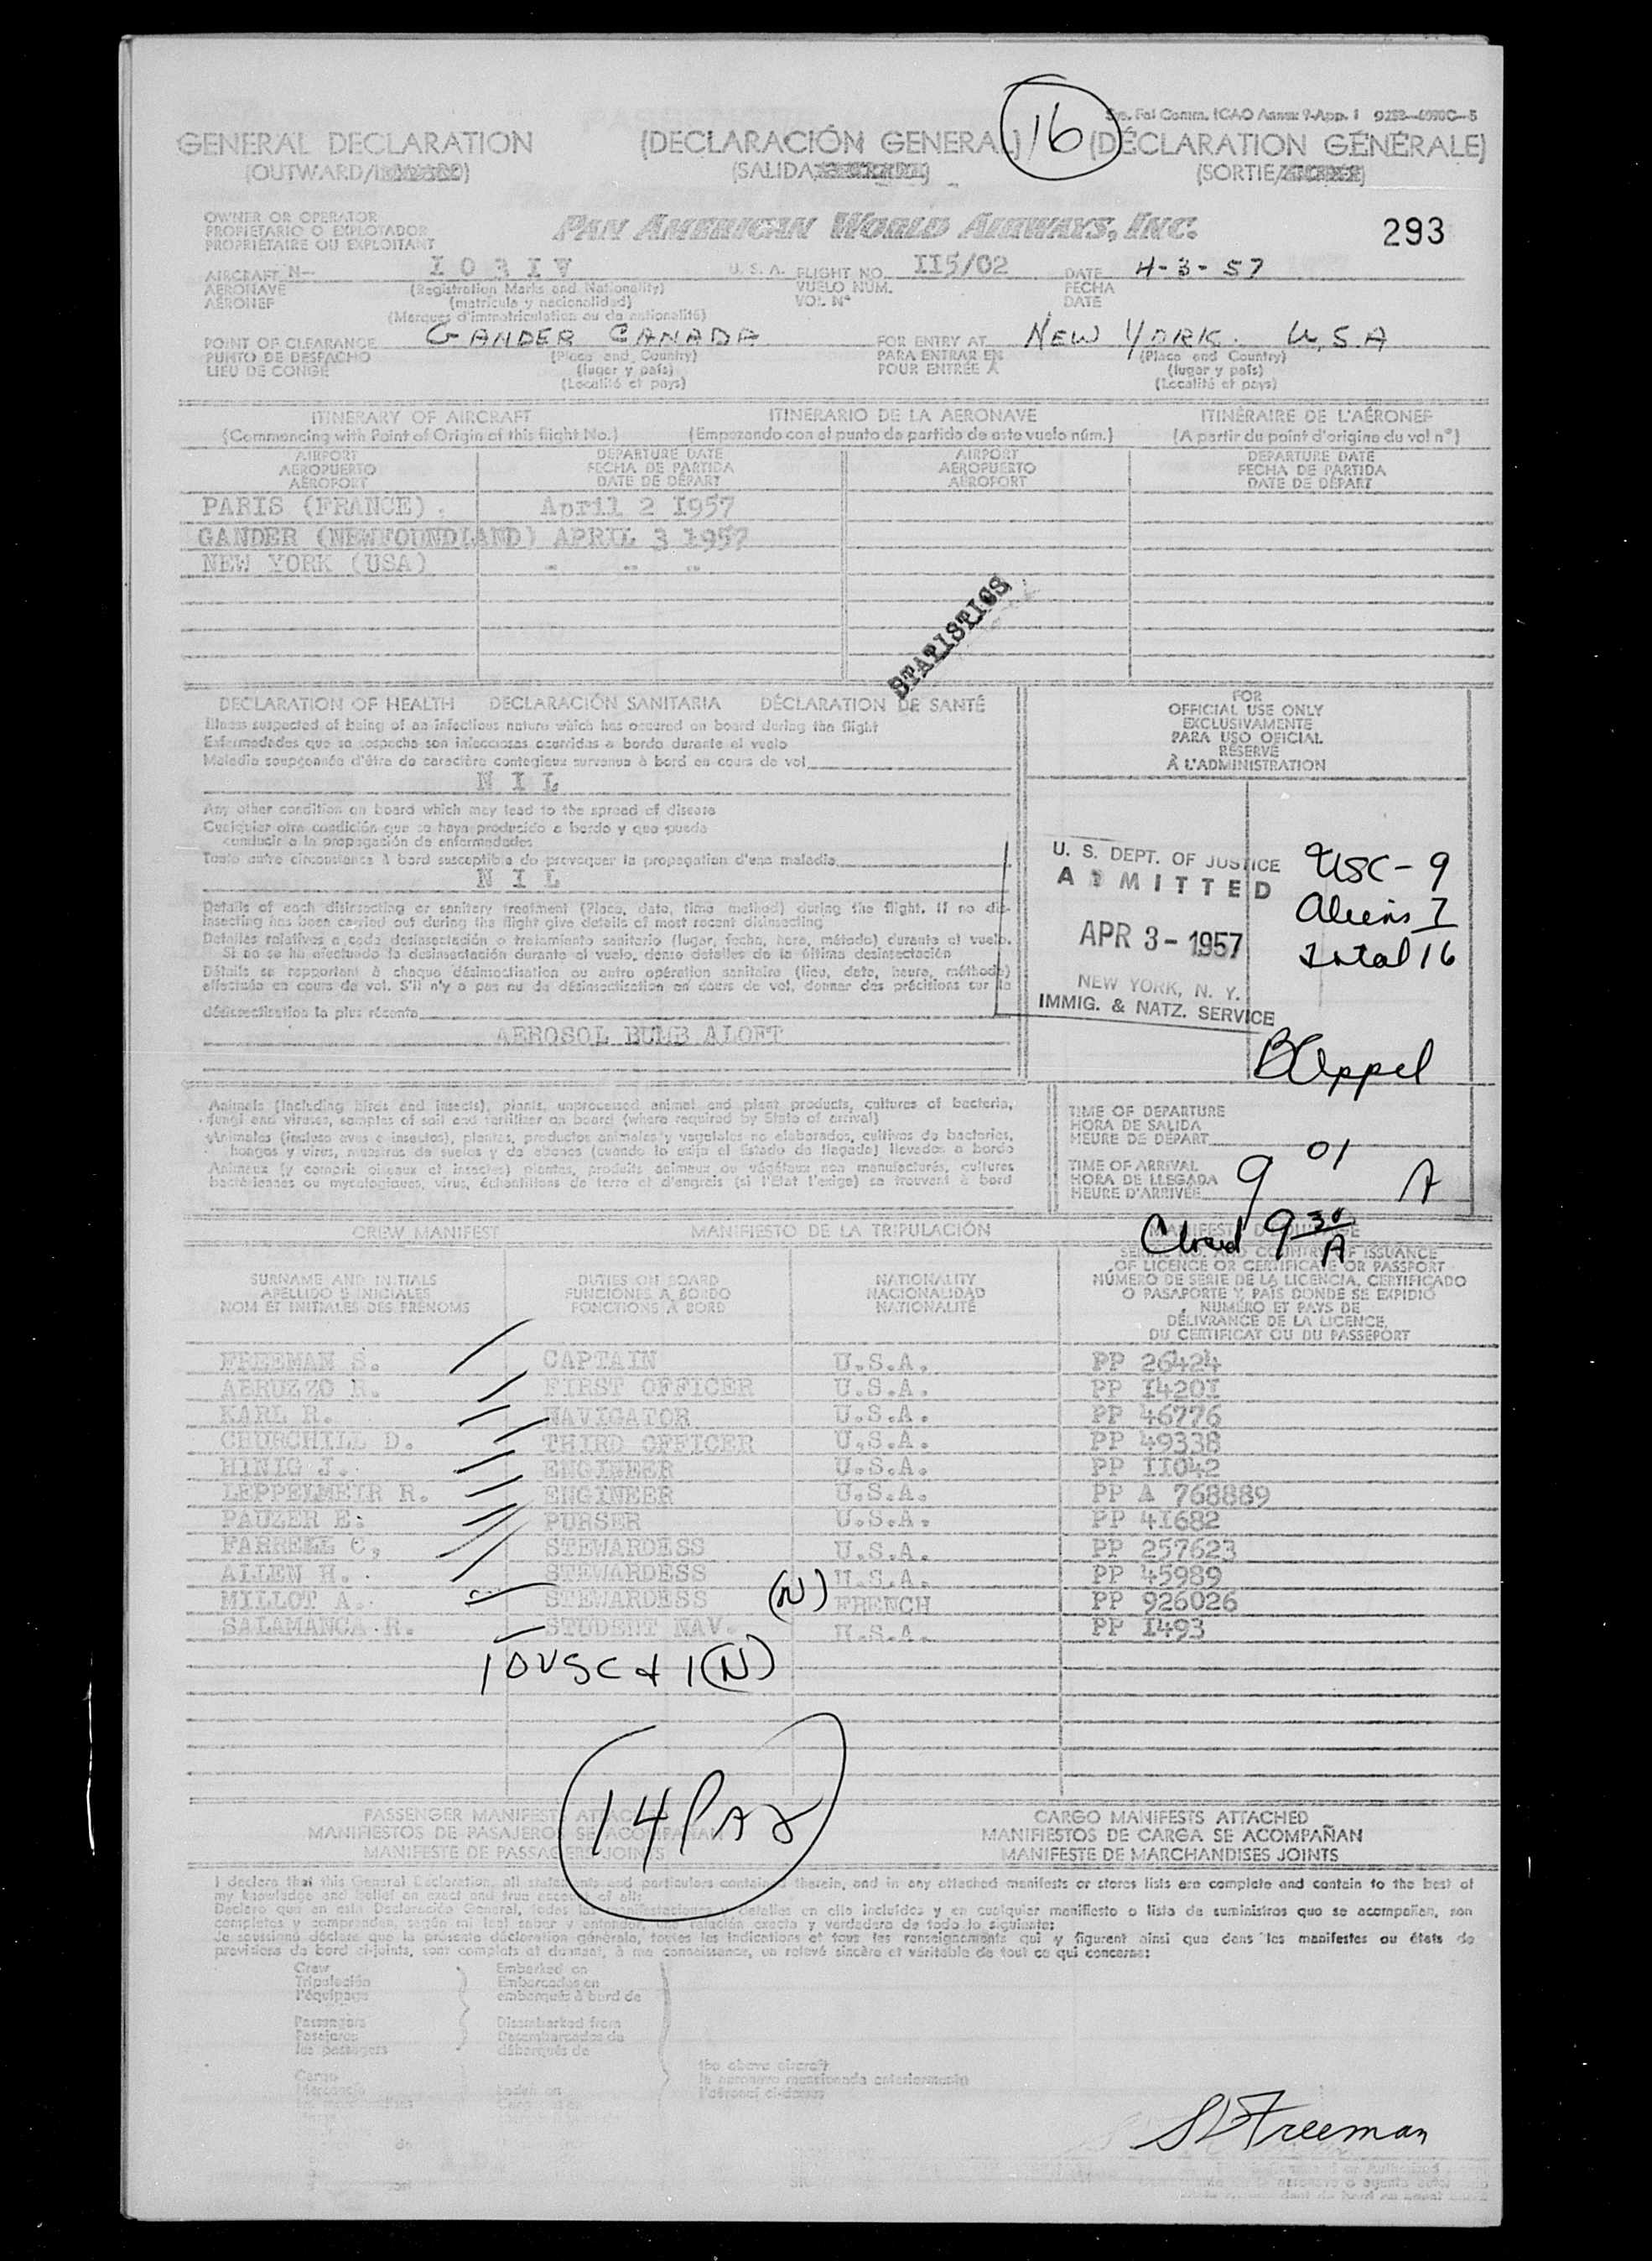 16
GENERAL DECLARATION (DECLARACIÓN GENERAL) (DÉCLARATION GÉNÉRALE)
(OUTWARD/ (SALIDA (SORTIE/
OWNER OR OPERATOR
PROPIETARIO O EXPLOTADOR
PROPRIÉTAIRE OU EXPLOITANT
PAN AMERICAN WORLD AIRWAYS, INC.
293
AIRCRAFT N- I03IV U.S.A. FLIGHT NO. II5/02 DATE 4-3-57
AÉRONAVE (Registration Marks and Nationality) VUELO NÚM. FECHA
AÉRONEF (matrícula y nacionalidad) VOL N° DATE
(Marques d'immatriculation ou de nationalité)
POINT OF CLEARANCE GANDER CANADA FOR ENTRY AT NEW YORK. U.S.A
PUNTO DE DESPACHO (Place and Country) PARA ENTRAR EN (Place and Country)
LIEU DE CONGÉ (lugar y país) POUR ENTRÉE À (lugar y país)
(Localité et pays) (Localité et pays)
ITINERARY OF AIRCRAFT ITINERARIO DE LA AERONAVE ITINÉRAIRE DE L'AÉRONEF
(Commencing with Point of Origin of this flight No.) (Empezando con el punto de partida de este vuelo núm.) (A partir du point d'origine du vol n°)
AIRPORT DEPARTURE DATE AIRPORT DEPARTURE DATE
AEROPUERTO FECHA DE PARTIDA AEROPUERTO FECHA DE PARTIDA
AÉROPORT DATE DE DÉPART AÉROPORT DATE DE DÉPART
PARIS (FRANCE). April 2 I957
GANDER (NEWFOUNDLAND) APRIL 3 1957
NEW YORK (USA) - - -
STATISTICS
DECLARATION OF HEALTH DECLARACIÓN SANITARIA DÉCLARATION DE SANTÉ
Illness suspected of being of an infectious nature which has occured on board during the flight
Enfermedades que se sospecha son infecciosas ocurridas a bordo durante el vuelo
Maladie soupçonnée d'être de caractère contagieux survenue à bord en cours de vol
NIL
Any other condition on board which may lead to the spread of disease
Cualquier otra condición que se haya producido a bordo y que pueda
conducir a la propagación de enfermedades
Toute autre circonstance à bord susceptible de provoquer la propagation d'une maladie
NIL
Details of each disinsecting or sanitary treatment (Place, date, time method) during the flight. If no dis-
insecting has been carried out during the flight give details of most recent disinsecting
Detalles relativos a cada desinsectación o tratamiento sanitario (lugar, fecha, hora, método) durante el vuelo.
Si no se ha efectuado la desinsectación durante el vuelo, dense detalles de la última desinsectación
Détails se rapportant à chaque désinsectisation ou autre opération sanitaire (lieu, date, heure, méthode)
effectuée en cours de vol. S'il n'y a pas eu de désinsectisation en cours de vol, donner des précisions sur la
désinsectisation la plus récente
AEROSOL BUMB ALOFT
FOR
OFFICIAL USE ONLY
EXCLUSIVAMENTE
PARA USO OFICIAL
RÉSERVÉ
À L'ADMINISTRATION
U. S. DEPT. OF JUSTICE
ADMITTED
APR 3 - 1957
NEW YORK, N. Y.
IMMIG. & NATZ. SERVICE
USC - 9
Aliens 7
Total 16
Animals (including birds and insects), plants, unprocessed animal and plant products, cultures of bacteria,
fungi and viruses, samples of soil and fertilizer on board (where required by State of arrival)
Animales (incluso aves e insectos), plantas, productos animales y vegetales no elaborados, cultivos de bacterias,
hongos y virus, muestras de suelos y de abonos (cuando lo exija el Estado de llegada) llevados a bordo
Animaux (y compris oiseaux et insectes) plantes, produits animaux ou végétaux non manufacturés, cultures
bactériennes ou mycologiques, virus, échantillons de terre et d'engrais (si l'État l'exige) se trouvant à bord
TIME OF DEPARTURE
HORA DE SALIDA
HEURE DE DÉPART
TIME OF ARRIVAL
HORA DE LLEGADA
HEURE D'ARRIVÉE
9 01 A
9 30 A
CREW MANIFEST MANIFIESTO DE LA TRIPULACIÓN
SERIAL NO. AND COUNTRY OF ISSUANCE
OF LICENCE OR CERTIFICATE OR PASSPORT
SURNAME AND INITIALS DUTIES ON BOARD NATIONALITY NÚMERO DE SERIE DE LA LICENCIA, CERTIFICADO
APELLIDO E INICIALES FUNCIONES A BORDO NACIONALIDAD O PASAPORTE Y PAÍS DONDE SE EXPIDIÓ
NOM ET INITIALES DES PRÉNOMS FONCTIONS À BORD NATIONALITÉ NUMÉRO ET PAYS DE
DÉLIVRANCE DE LA LICENCE,
DU CERTIFICAT OU DU PASSEPORT
FREEMAN S. CAPTAIN U.S.A. PP 26424
ABRUZZO R. FIRST OFFICER U.S.A. PP I420I
KARL R. NAVIGATOR U.S.A. PP 46776
CHURCHILL D. THIRD OFFICER U.S.A. PP 49338
HINIG J. ENGINEER U.S.A. PP II042
LEPPELMEIR R. ENGINEER U.S.A. PP A 768889
PAUZER E. PURSER U.S.A. PP 4I682
FARRELL C, STEWARDESS U.S.A. PP 257623
ALLEN H. STEWARDESS U.S.A. PP 45989
MILLOT A. STEWARDESS (N) FRENCH PP 926026
SALAMANCA R. STUDENT NAV. U.S.A. PP I493
10 USC & 1 (N)
14 Pax
PASSENGER MANIFESTS ATTACHED CARGO MANIFESTS ATTACHED
MANIFIESTOS DE PASAJEROS SE ACOMPAÑAN MANIFIESTOS DE CARGA SE ACOMPAÑAN
MANIFESTE DE PASSAGERS JOINTS MANIFESTE DE MARCHANDISES JOINTS
I declare that this General Declaration, all statements and particulars contained therein, and in any attached manifests or stores lists are complete and contain to the best of
my knowledge and belief an exact and true account of all:
Declaro que en esta Declaración General, todas las manifestaciones y detalles en ella incluídos y en cualquier manifiesto o lista de suministros que se acompañan, son
completos y comprenden, según mi leal saber y entender, una relación exacta y verdadera de todo lo siguiente:
Je soussigné déclare que la présente déclaration générale, toutes les indications et tous les renseignements qui y figurent ainsi que dans les manifestes ou états de
provisions de bord ci-joints, sont complets et donnent, à ma connaissance, un relevé sincère et véritable de tout ce qui concerne:
Crew Embarked on
Tripulación Embarcados en
l'équipage embarqués à bord de
Passengers Disembarked from
Pasajeros Desembarcados de
les passagers débarqués de
Cargo Laden on
the above aircraft
la aeronave mencionada anteriormente
l'aéronef ci-dessus
S Freeman